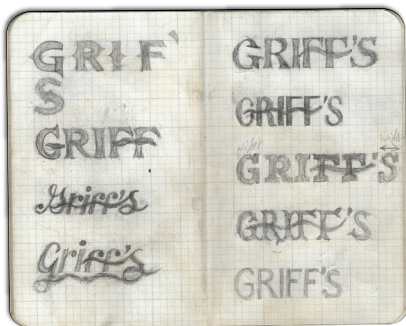 GRIF'
S
GRIFF
Griff's
Griff's
GRIFF'S
GRIFF'S
wider
GRIFF'S
GRIFF'S
GRIFF'S